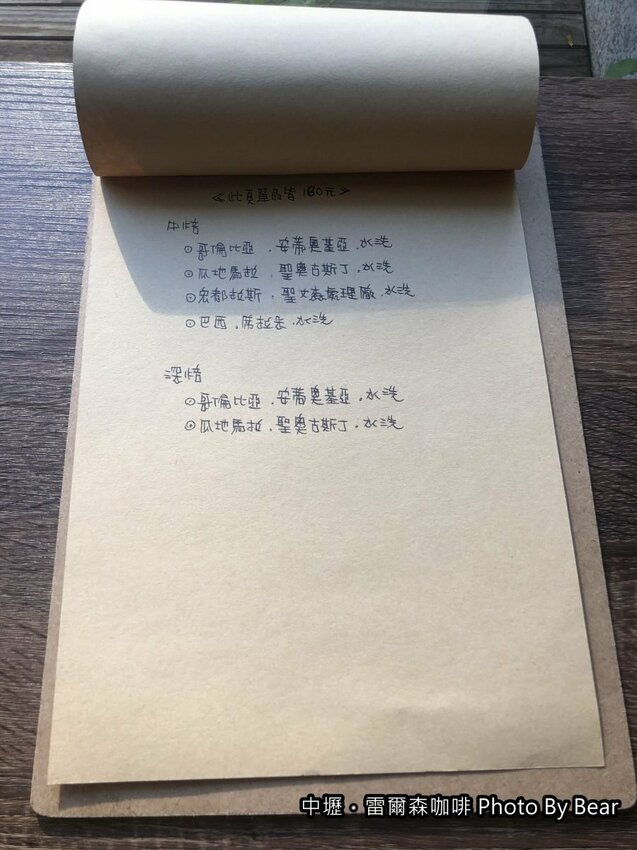 ≪此頁單品皆180元≫
中焙
⊙哥倫比亞.安蒂奧基亞.水洗
⊙瓜地馬拉.聖奧古斯丁.水洗
⊙宏都拉斯.聖文森處理廠.水洗
⊙巴西.席拉朵.水洗
深焙
⊙哥倫比亞.安蒂奧基亞.水洗
⊙瓜地馬拉.聖奧古斯丁.水洗
中壢・雷爾森咖啡 Photo By Bear